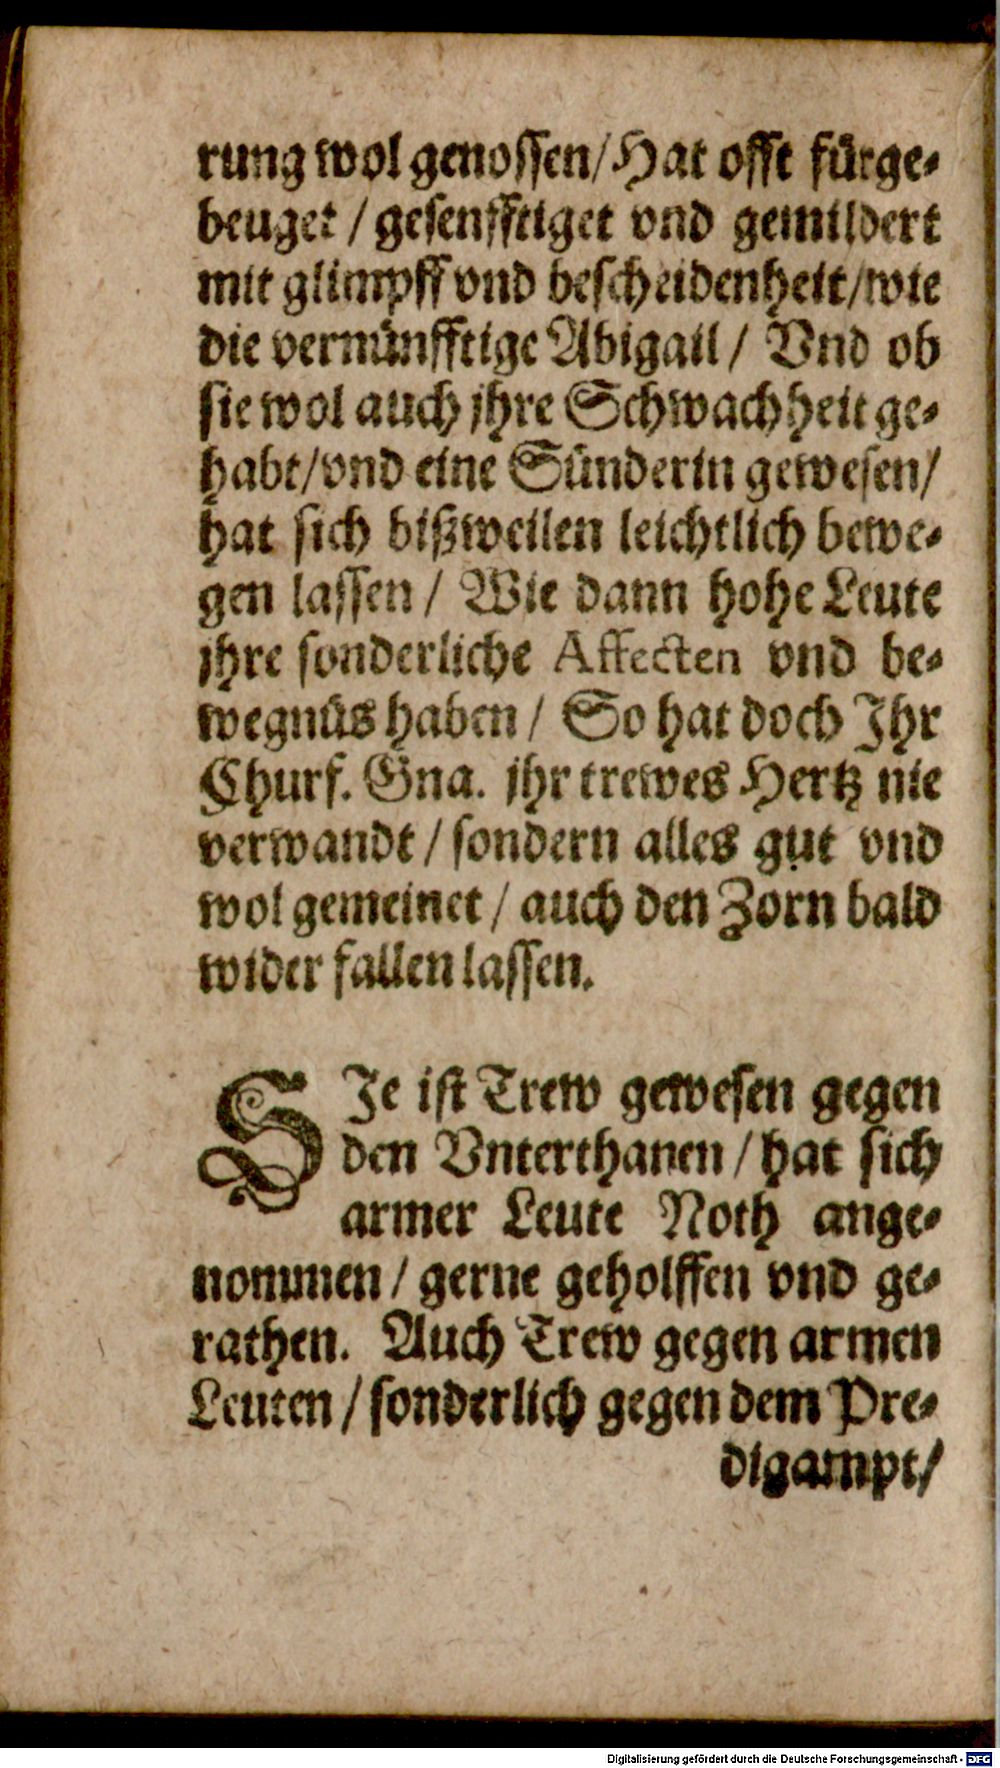 rung wol genossen/ Hat offt fürge-
beuget / gesenfftiget vnd gemildert
mit glimpff vnd bescheidenheit/ wie
die vernünfftige Abigail / Vnd ob
sie wol auch jhre Schwachheit ge-
habt/ vnd eine Sünderin gewesen/
hat sich bißweilen leichtlich bewe-
gen lassen / Wie dann hohe Leute
jhre sonderliche Affecten vnd be-
wegnüs haben / So hat doch Jhr
Churf. Gna. jhr trewes Hertz nie
verwandt / sondern alles gut vnd
wol gemeinet / auch den Zorn bald
wider fallen lassen.
SJe ist Trew gewesen gegen
den Vnterthanen / hat sich
armer Leute Noth ange-
nommen / gerne geholffen vnd ge-
rathen. Auch Trew gegen armen
Leuten / sonderlich gegen dem Pre-
digampt/
Digitalisierung gefördert durch die Deutsche Forschungsgemeinschaft - DFG